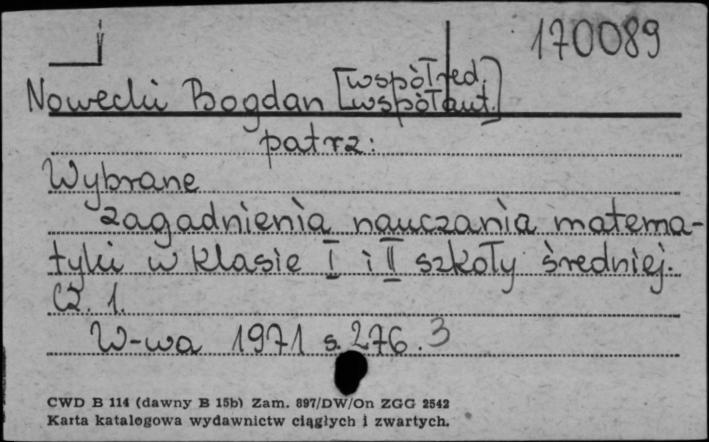 170089
Nowecki Bogdan [współred.
współaut.]
patrz:
Wybrane
zagadnienia nauczania matema-
tyki w klasie I i II szkoły średniej.
Cz. 1.
W-wa 1971 s. 276. 3
CWD B 114 (dawny B 15b) Zam. 897/DW/On ZGG 2542
Karta katalogowa wydawnictw ciągłych i zwartych.